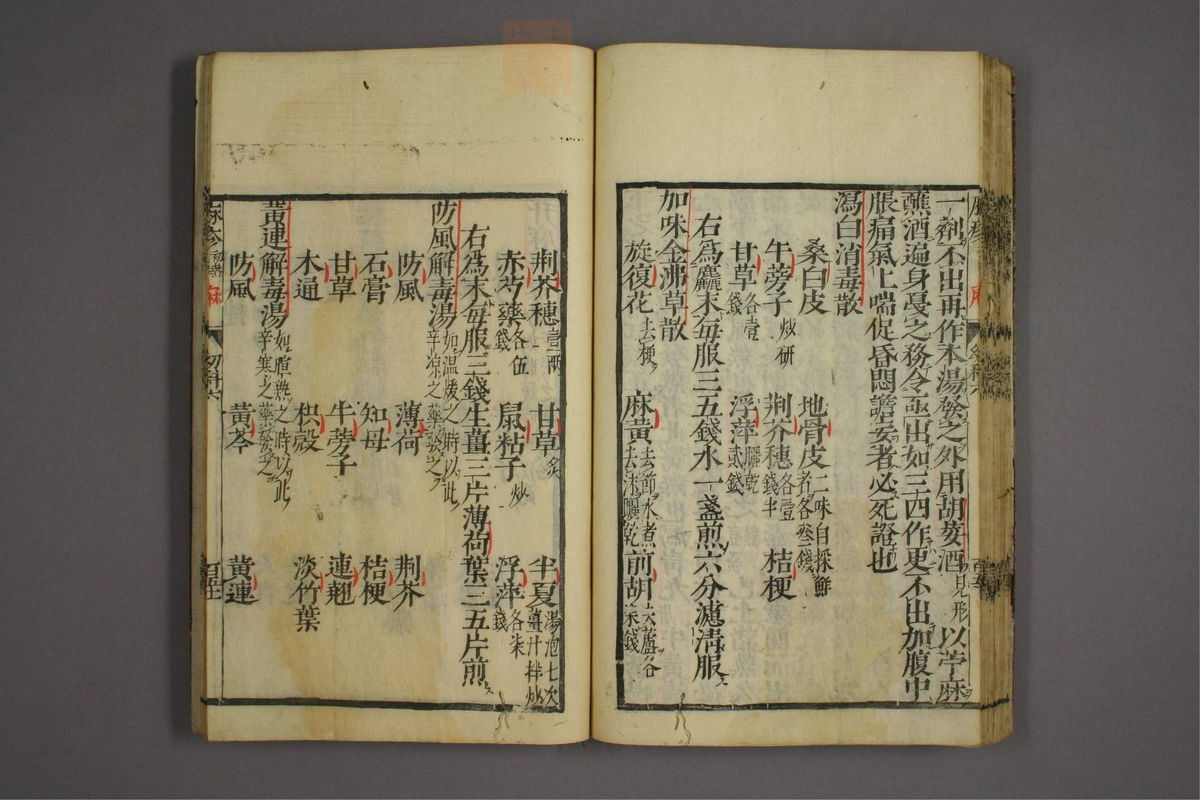 一劑不出再作本湯發之外用胡荽酒見形以苧麻
蘸酒遍身戞之務令亟出如三四作更不出加腹中
脹痛氣上喘促昏悶譫妄者必死證也
瀉白消毒散
桑白皮 地骨皮二味自採鮮者各叁錢
牛蒡子炒研 荆芥穗各壹錢半 桔梗
甘草各壹錢 浮萍曬乾貳錢
右爲麤末每服三五錢水一盞煎六分濾淸服
加味金沸草散
旋復花去梗 麻黄去節水煮去沫曬乾 前胡去蘆各柒錢
荆芥穗壹兩 甘草炙 半夏湯泡七次薑汁拌炒
赤芍藥各伍錢 鼠粘子炒 浮萍各柒錢
右爲末每服三錢生薑三片薄荷葉三五片煎
防風解毒湯如温煖之時以此辛凉之藥發之
防風 薄荷 荆芥
石膏 知母 桔梗
甘草 牛蒡子 連翹
木通 枳殼 淡竹葉
黄連解毒湯如暄熱之時以此辛寒之藥發之
防風 黄芩 黄連